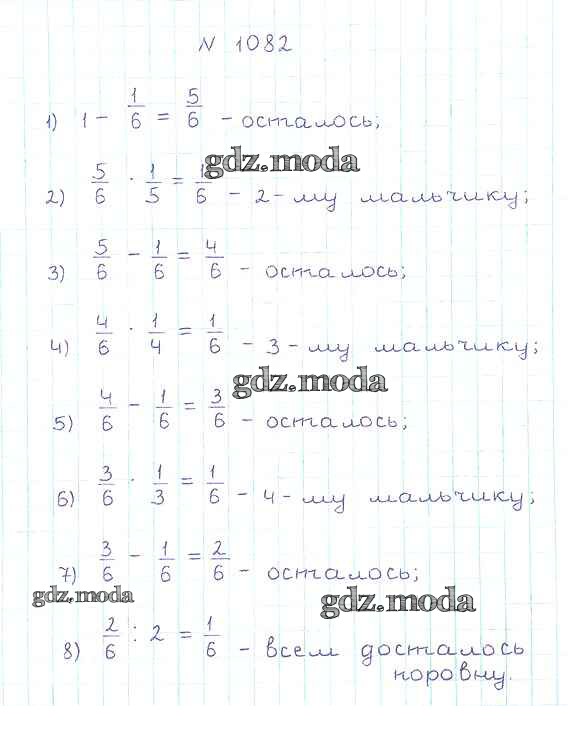 N 1082
1) 1 - 1/6 = 5/6 - осталось;
gdz.moda
2) 5/6 · 1/5 = 1/6 - 2-му мальчику;
3) 5/6 - 1/6 = 4/6 - осталось;
4) 4/6 · 1/4 = 1/6 - 3-му мальчику;
gdz.moda
5) 4/6 - 1/6 = 3/6 - осталось;
6) 3/6 · 1/3 = 1/6 - 4-му мальчику;
7) 3/6 - 1/6 = 2/6 - осталось;
gdz.moda
gdz.moda
8) 2/6 : 2 = 1/6 - всем досталось
поровну.